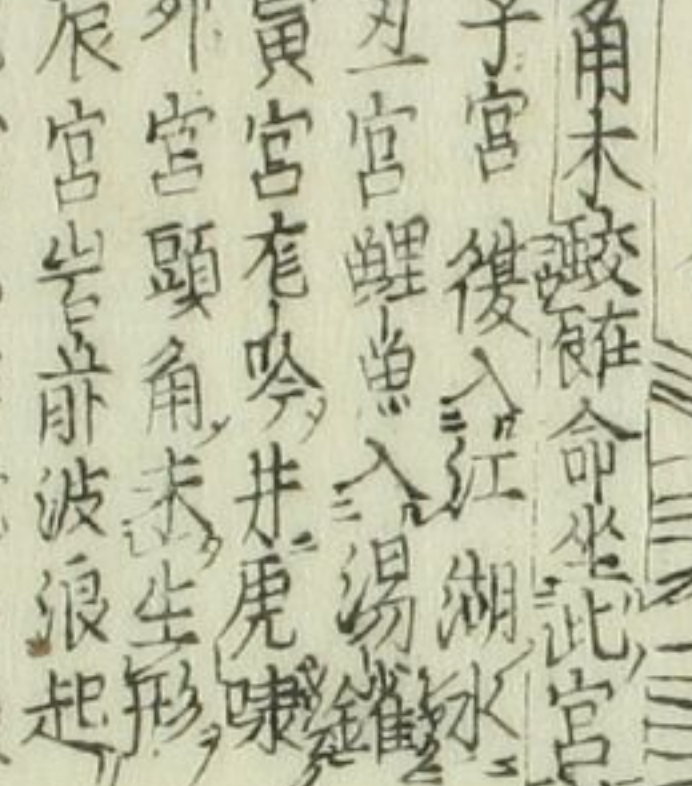 角木蛟命坐此宮
子宮復入江湖水
丑宮鯉魚入湯鑊
寅宮龙吟井虎嘯
卯宮頭角未生形
辰宮岩前波浪起